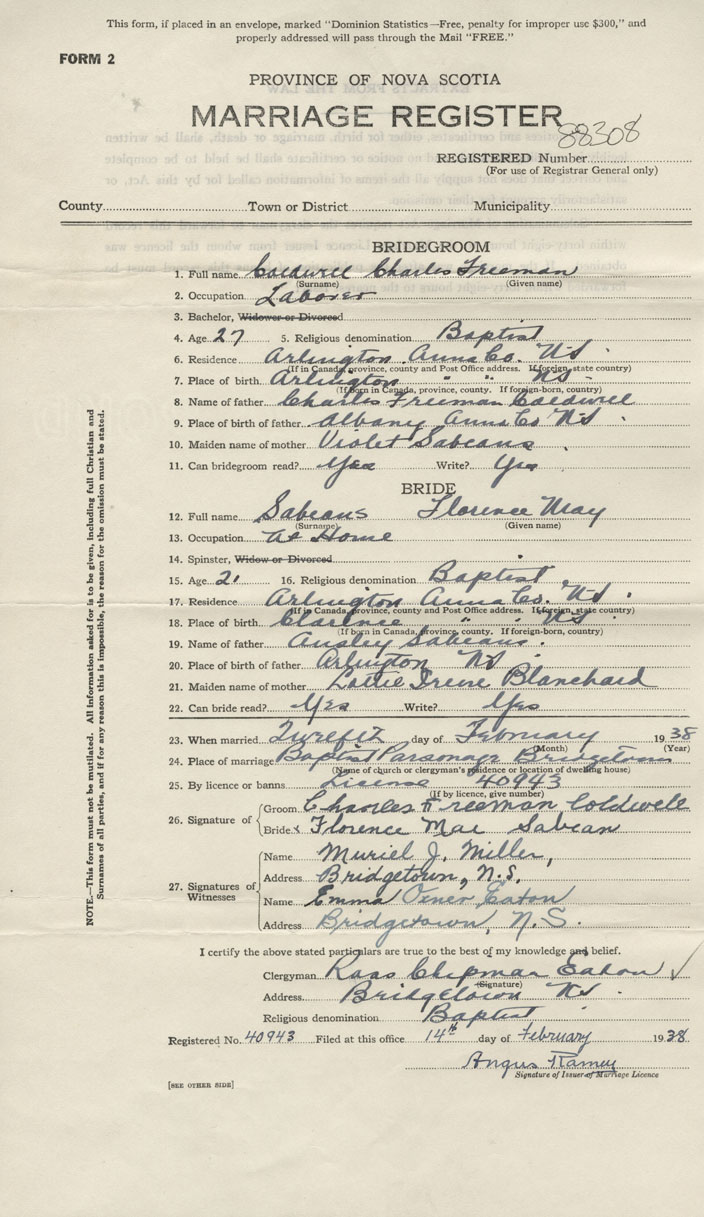 This form, if placed in an envelope, marked "Dominion Statistics—Free, penalty for improper use $300," and
properly addressed will pass through the Mail "FREE."
FORM 2
PROVINCE OF NOVA SCOTIA
MARRIAGE REGISTER
88308
REGISTERED Number
(For use of Registrar General only)
County Town or District Municipality
BRIDEGROOM
1. Full name Coldwell Charles Freeman
(Surname) (Given name)
2. Occupation Laborer
3. Bachelor, Widower or Divorced
4. Age 27 5. Religious denomination Baptist
6. Residence Arlington Anna Co. N S
(If in Canada, province, county and Post Office address. If foreign, state country)
7. Place of birth Arlington " " N S
(If born in Canada, province, county. If foreign-born, country)
8. Name of father Charles Freeman Coldwell
9. Place of birth of father Albany Anna Co N S
10. Maiden name of mother Violet Sabeans
11. Can bridegroom read? Yes Write? Yes
BRIDE
12. Full name Sabeans Florence May
(Surname) (Given name)
13. Occupation At Home
14. Spinster, Widow or Divorced
15. Age 21 16. Religious denomination Baptist
17. Residence Arlington Anna Co. N S
(If in Canada, province, county and Post Office address. If foreign, state country)
18. Place of birth Clarence " " N S
(If born in Canada, province, county. If foreign-born, country)
19. Name of father Ansley Sabeans
20. Place of birth of father Arlington N S
21. Maiden name of mother Lottie Irene Blanchard
22. Can bride read? Yes Write? Yes
23. When married Twelfth day of February 1938
(Month) (Year)
24. Place of marriage Baptist Parsonage Bridgetown
(Name of church or clergyman's residence or location of dwelling house)
25. By licence or banns License 40943
(If by licence, give number)
26. Signature of
Groom Charles Freeman Coldwell
Bride x Florence Mae Sabean
27. Signatures of Witnesses
Name Muriel J. Miller,
Address Bridgetown, N.S.
Name Emma Eaton
Address Bridgetown, N.S.
I certify the above stated particulars are true to the best of my knowledge and belief.
Clergyman Ross Chipman Eaton
(Signature)
Address Bridgetown N S
Religious denomination Baptist
Registered No. 40943 Filed at this office 14th day of February 1938
Angus Ramey
Signature of Issuer of Marriage Licence
[SEE OTHER SIDE]
NOTE.—This form must not be mutilated. All information asked for is to be given, including full Christian and
Surnames of all parties, and if for any reason this is impossible, the reason for the omission must be stated.